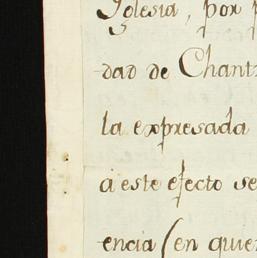 Yglesia, por
dad de Chant
la expresada
á este efecto se
encia (en quien